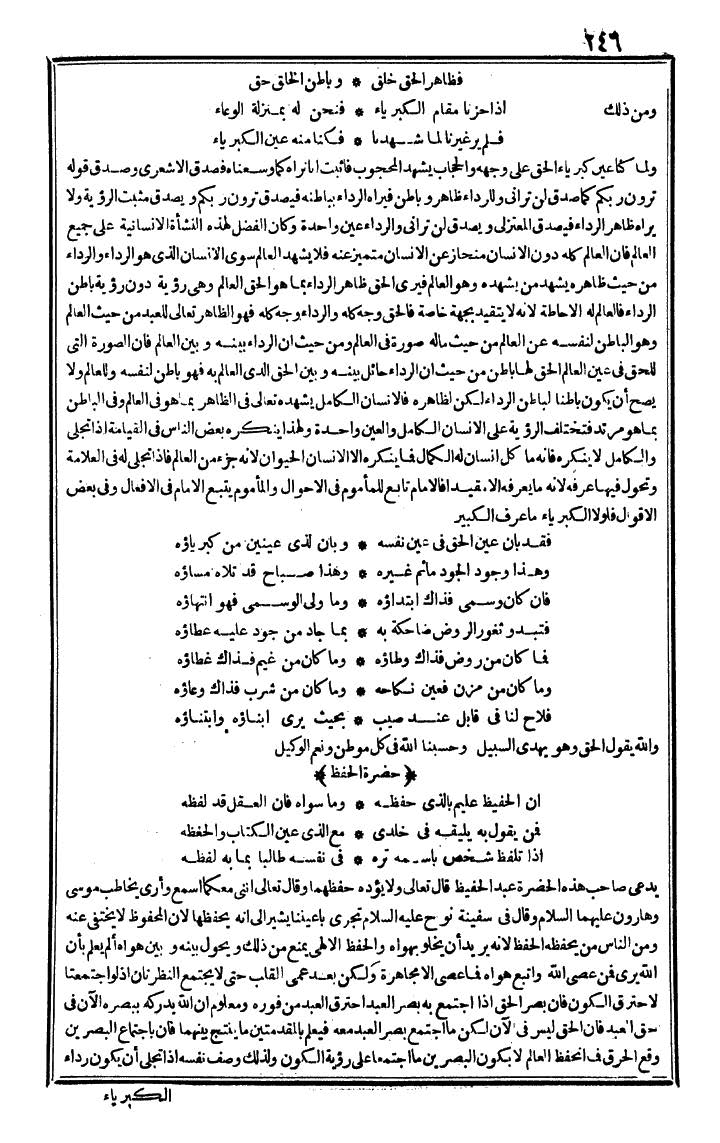 ٢٤٦
فظاهر الحق خلق * و باطن الخلق حق
ومن ذلك اذا حزنا مقام الكبرياء * فنحن له بمنزلة الوعاء
فلم ير غيرنا لما شهدنا * فكنا منه عين الكبرياء
ولما كنا عين كبرياء الحق على وجهه والحجاب يشهد المحجوب فأثبت انا نراه كما وسعناه فصدق الاشعرى وصدق قوله
ترون ربكم كما صدق لن ترانى وللرداء ظاهر و باطن فيراه الرداء بباطنه فيصدق ترون ربكم و يصدق مثبت الرؤية ولا
يراه ظاهر الرداء فيصدق المعتزلى و يصدق لن ترانى والرداء عين واحدة وكان الفضل لهذه النشأة الانسانية على جميع
العالم فان العالم كله دون الانسان منحاز عن الانسان متميز عنه فلا يشهد العالم سوى الانسان الذى هو الرداء والرداء
من حيث ظاهره يشهد من يشهده وهو العالم فيرى الحق ظاهر الرداء بما هو الحق العالم وهى رؤية دون رؤية باطن
الرداء فالعالم له الاحاطة لانه لا يتقيد بجهة خاصة فالحق وجه كله والرداء وجه كله فهو الظاهر تعالى للعبد من حيث العالم
وهو الباطن لنفسه عن العالم من حيث ماله صورة فى العالم ومن حيث ان الرداء بينه و بين العالم فان الصورة التى
للحق فى عين العالم الحق لها باطن من حيث ان الرداء حائل بينه و بين الحق الذى العالم به فهو باطن لنفسه وللعالم ولا
يصح أن يكون باطنا لباطن الرداء لكن لظاهره فالانسان الكامل يشهده تعالى فى الظاهر بما هو فى العالم وفى الباطن
بما هو مرتد فتختلف الرؤية على الانسان الكامل والعين واحدة ولهذا ينكره بعض الناس فى القيامة اذا تجلى
والكامل لا ينكره فانه ما كل انسان له الكمال فما ينكره الا الانسان الحيوان لانه جزء من العالم فاذا تجلى له فى العلامة
وتحول فيها عرفه لانه ما يعرفه الا مقيدا فالامام تابع للمأموم فى الاحوال والمأموم يتبع الامام فى الافعال وفى بعض
الاقوال فلولا الكبرياء ما عرف الكبير
فقد بان عين الحق فى عين نفسه * و بان لذى عينين من كبرياؤه
وهذا وجود الجود ماثم غيره * وهذا صباح قد تلاه مساؤه
فان كان وسمى فذاك ابتداؤه * وما ولى الوسمى فهو انتهاؤه
فتبدو ثغور الروض ضاحكة به * بما جاد من جود عليه عطاؤه
فما كان من روض فذاك وطاؤه * وما كان من غيم فذاك غطاؤه
وما كان من مزن فعين نكاحه * وما كان من شرب فذاك وعاؤه
فلاح لنا فى قابل عند صيب * بحيث يرى ابناؤه وابتناؤه
والله يقول الحق وهو يهدى السبيل وحسبنا الله فى كل موطن ونعم الوكيل
﴿ حضرة الحفظ ﴾
ان الحفيظ عليم بالذى حفظه * وما سواه فان العقل قد لفظه
فمن يقول به يلقيه فى خلدى * مع الذى عين الكتاب والحفظه
اذا تلفظ شخص باسمه تره * فى نفسه طالبا بما به لفظه
يدعى صاحب هذه الحضرة عبد الحفيظ قال تعالى ولا يؤده حفظهما وقال تعالى اننى معكما اسمع وأرى يخاطب موسى
وهارون عليهما السلام وقال فى سفينة نوح عليه السلام تجرى باعيننا يشير الى انه يحفظها لان المحفوظ لا يختفى عنه
ومن الناس من يحفظه الحفظ لانه يريد أن يخلو بهواه والحفظ الالهى يمنع من ذلك و يحول بينه و بين هواه ألم يعلم بأن
الله يرى فمن عصى الله واتبع هواه فما عصى الا مجاهرة ولكن بعد عمى القلب حتى لا يجتمع النظرتان اذ لو اجتمعتا
لاحترق الكون فان بصر الحق اذا اجتمع به بصر العبد احترق العبد من فوره ومعلوم ان الله يدركه ببصره الآن فى
حق العبد فان الحق ليس فى الآن لكن ما اجتمع بصر العبد معه فيعلم بالمقدمتين ما ينتج بينهما فان باجتماع البصرين
وقع الحرق فانحفظ العالم لا بكون البصرين ما اجتمعا على رؤية الكون ولذلك وصف نفسه اذا تجلى أن يكون رداء
الكبرياء